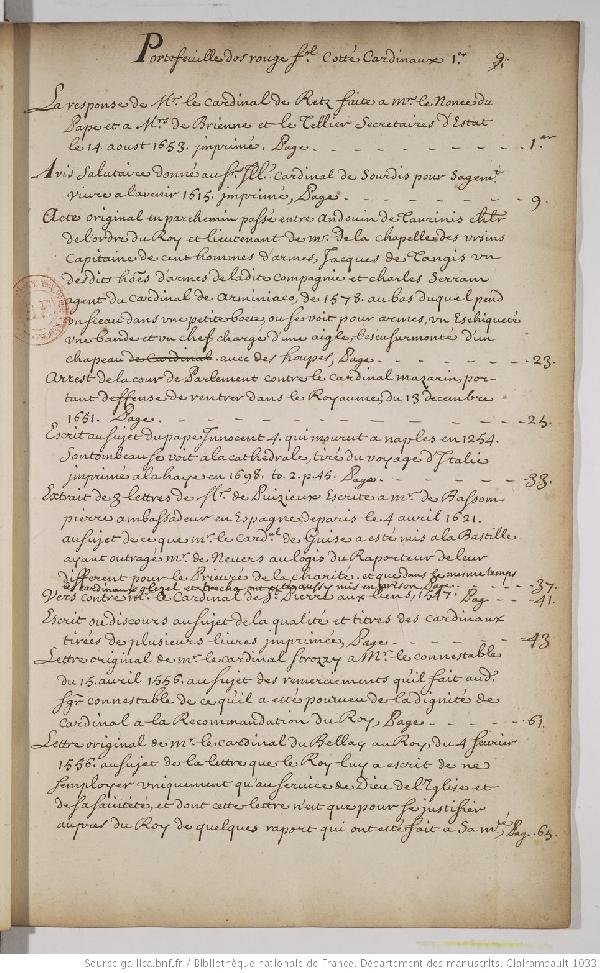 Portefeuille dos rouge fol. Cotté Cardinaux 1.er 9.
La response de Mr. le Cardinal de Retz faite a mr. le Nonce du
Pape et a Mrs de Brienne et le Tellier Secretaires d'Estat
le 14 aoust 1653. imprimé. Page 1.er
Avis Salutaire donné au Sr. Ill. Cardinal de Sourdis pour Sagemt.
vivre a lavenir 1615. imprimé, Page 9.
Acte original en parchemin passé entre Andouin de Taurinis chlr
de lordre du Roy et lieutenant de mr. de la chapelle des vrsins
Capitaine de cent hommes d'armes, Jacques de Tangis vn
desdits hoes d'armes de ladite compagnie et charles Serram
agent du Cardinal de Arminiaco, de 1578. au bas duquel pend
vn sceau dans vne petite boete, ou se voit pour armes, vn Eschiqueté
vne bande et vn chef chargé d'une aigle, l'escu surmonté d'un
chapeau de Cardinal avec des houpes, Page 23.
Arrest de la cour de Parlement contre le Cardinal mazarin, por-
tant deffense de rentrer dans le Royaume, du 13 decembre
1651. Page 25.
Escrit au sujet du pape Innocent 4. qui mourut a naples en 1254.
Son tombeau se voit a la cathedrale, tiré du voyage d'Italie
imprimé a la haye en 1698. to. 2. p. 45. Page 33.
Extrait de 3 lettres de Mr. de Puizieux Escrite a mr. de Bassom
pierre ambassadeur en Espagne de paris le 4 avril 1621.
au sujet de ce que mr. le Cardal de Guise a esté mis a la Bastille
ayant outragé mr. de Nevers au logis du Raporteur de leur
different pour le Prieuré de la charité. et que dans le mesme temps
les cardinaux glesel et trecha ont esté aussy mis en prison Page 37.
Vers contre mr. le Cardinal de St. Pierre aux liens, 1547. Pag 41.
Escrit ou discours au sujet de la qualité et titres des cardinaux
tirées de plusieurs livres imprimée, Page 43
Lettre original de mr. le cardinal strozzy a Mr. le connestable
du 15. avril 1556. au sujet des remerciements qu'il fait aud.
Sgr. connestable de ce qu'il a esté pourveu de la dignité de
Cardinal a la Recommandation du Roy, Page 61.
Lettre original de mr. le cardinal du Bellay au Roy, du 4 fevrier
1556. au sujet de la lettre que le Roy luy a escrit de ne
semployer vniquement qu'au service de Dieu de l'Eglise et
de sa saincteté, et dont cette lettre n'est que pour se justifier
aupres du Roy de quelques raport qui ont esté fait a Sa mté, Pag. 65.
Source gallica.bnf.fr / Bibliothèque nationale de France. Département des manuscrits. Clairambault 1033